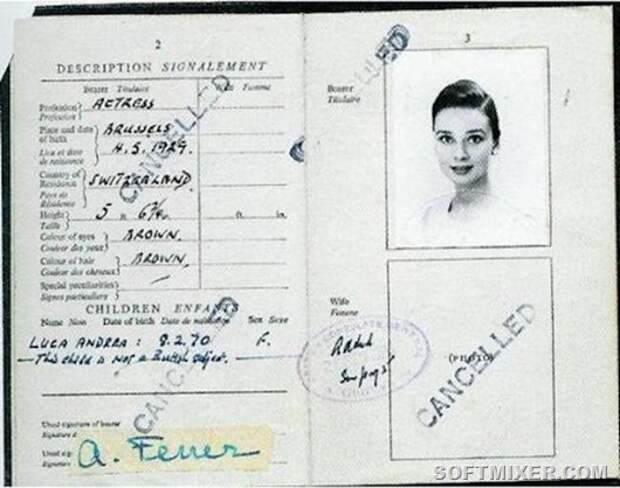 2
DESCRIPTION SIGNALEMENT
Bearer Titulaire
Wife Femme
Profession
Profession
ACTRESS
Place and date
of birth
Lieu et date
de naissance
BRUSSELS
4.5.1929.
Country of
Residence
Pays de
Résidence
SWITZERLAND
Height
Taille
5 ft. 6¾in.
ft. in.
Colour of eyes
Couleur des yeux
BROWN.
Colour of hair
Couleur des cheveux
BROWN.
Special peculiarities
Signes particuliers
CHILDREN ENFANTS
Name Nom Date of birth Date de naissance Sex Sexe
LUCA ANDREA: 8.2.70 F.
- This child is not a British subject. -
Usual signature of bearer
Signature d
Usual sig
Signature
A. Ferrer
CANCELLED
CANCELLED
3
CANCELLED
Bearer
Titulaire
Wife
Femme
(PHOTO)
CANCELLED
SOFTMIXER.COM